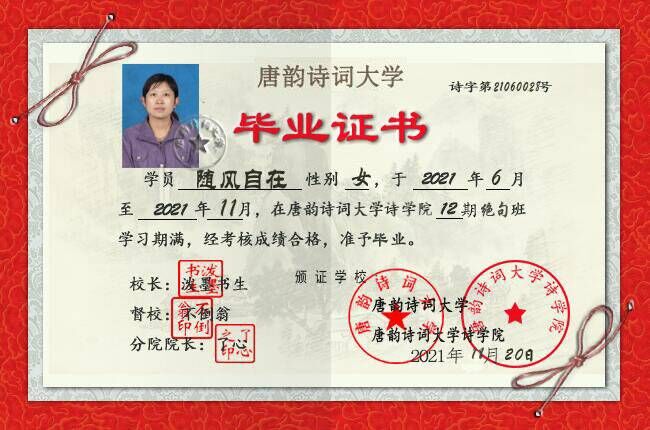 唐韵诗词大学
诗字第21060028号
毕业证书
学员 随风自在 性别 女，于 2021 年 6 月
至 2021 年 11月，在唐韵诗词大学诗学院 12 期绝句班
学习期满，经考核成绩合格，准予毕业。
校长：泼墨书生
督校：不倒翁
分院院长：了心
颁证学校：
唐韵诗词大学
唐韵诗词大学诗学院
2021年 11月 20日
唐韵诗词大学
唐韵诗词大学诗学院
不倒翁印
了心之印